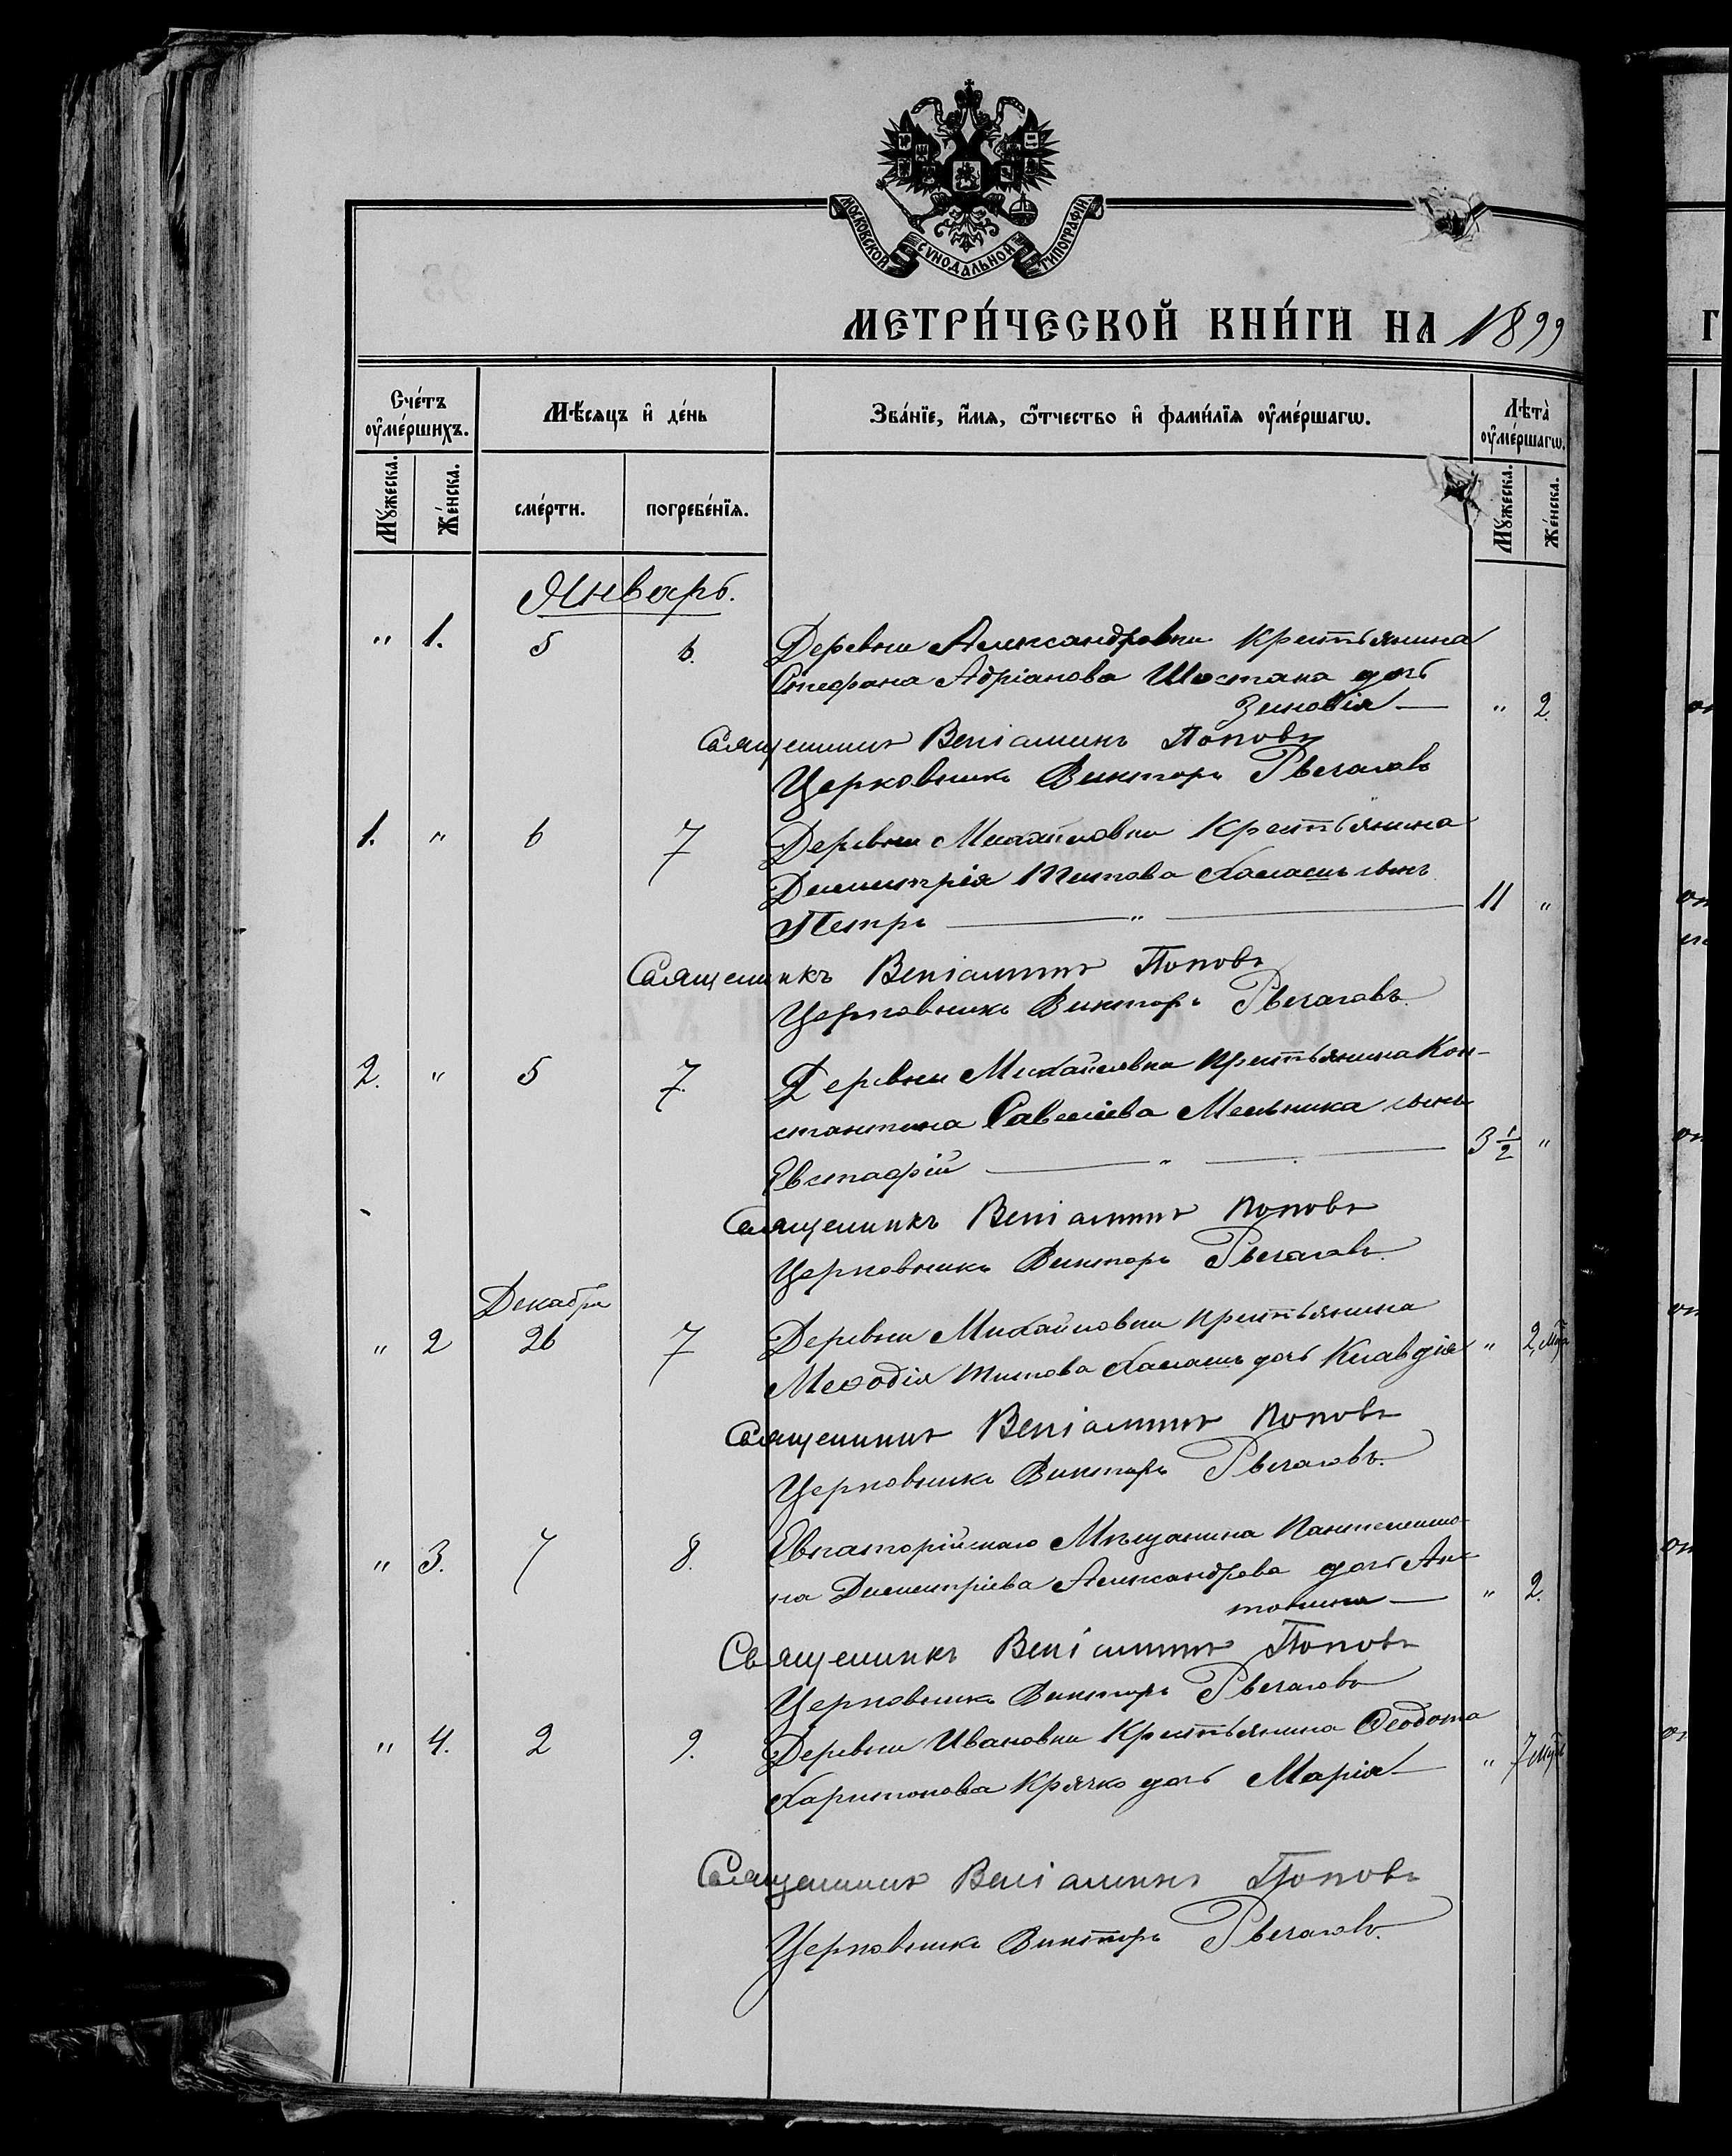 МОСКОВСКОЙ СѴНОДАЛЬНОЙ ТИПОГРАФІИ
МЕТРИ́ЧЕСКОЙ КНИ́ГИ НА 1899
Счéтъ оу҆мéршихъ.
Мѣ́сяцъ и҆ дéнь
Звáнїе, и҆́мя, ѻ҆́тчество и҆ фами́лїя оу҆мéршагѡ.
Лѣтà оу҆мéршагѡ.
Мꙋ́жеска.
Жéнска.
смéрти.
погребéнїя.
Мꙋ́жеска.
Жéнска.
Январь.
" 1. 5 6. Деревни Александровки крестьянина
Стефана Адріанова Шостака дочь
Зиновія — " 2.
Священникъ Веніаминъ Поповъ
Церковникъ Викторъ Рѣчаговъ
1. " 6 7 Деревни Михайловки Крестьянина
Димитрія Титова Халашъ сынъ
Петръ — " — 11 "
Священникъ Веніаминъ Поповъ
Церковникъ Викторъ Рѣчаговъ.
2. " 5 7. Деревни Михайловки крестьянина Кон-
стантина Савеліева Мельника сынъ
Евстафій — " — 3 1/2 "
Священникъ Веніаминъ Поповъ
Церковникъ Викторъ Рѣчаговъ.
Декабря
" 2 26 7 Деревни Михайловки крестьянина
Меѳодія Титова Халашъ дочь Клавдія " 2
Священникъ Веніаминъ Поповъ
Церковникъ Викторъ Рѣчаговъ.
" 3. 7 8. Евпаторійскаго Мѣщанина Пантелеимо-
на Димитріева Александрова дочь Ан-
тонина — " 2.
Священникъ Веніаминъ Поповъ
Церковникъ Викторъ Рѣчаговъ
" 4. 2 9. Деревни Ивановки Крестьянина Ѳеодота
Харитонова Крячко дочь Марія — " 7
Священникъ Веніаминъ Поповъ
Церковникъ Викторъ Рѣчаговъ.